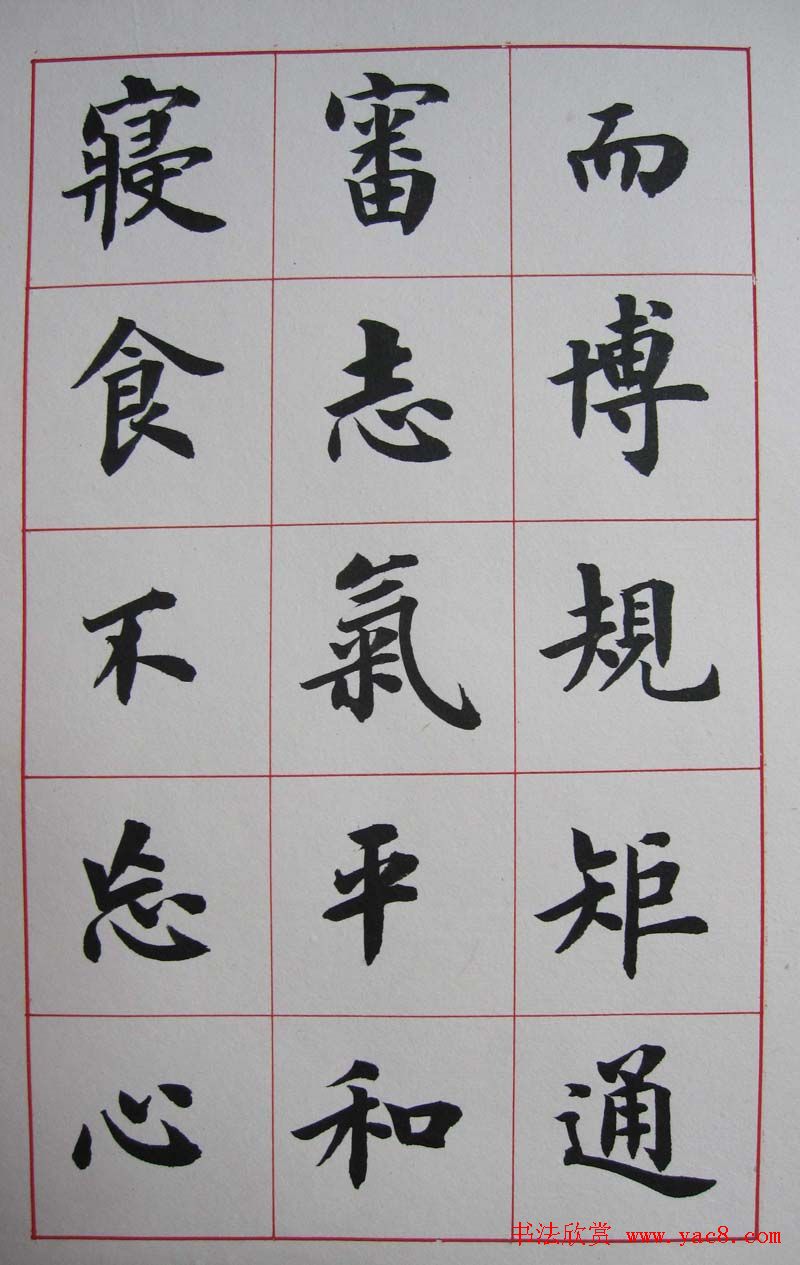 而博規矩通
審志氣平和
寢食不忘心
书法欣赏 www.yac8.com